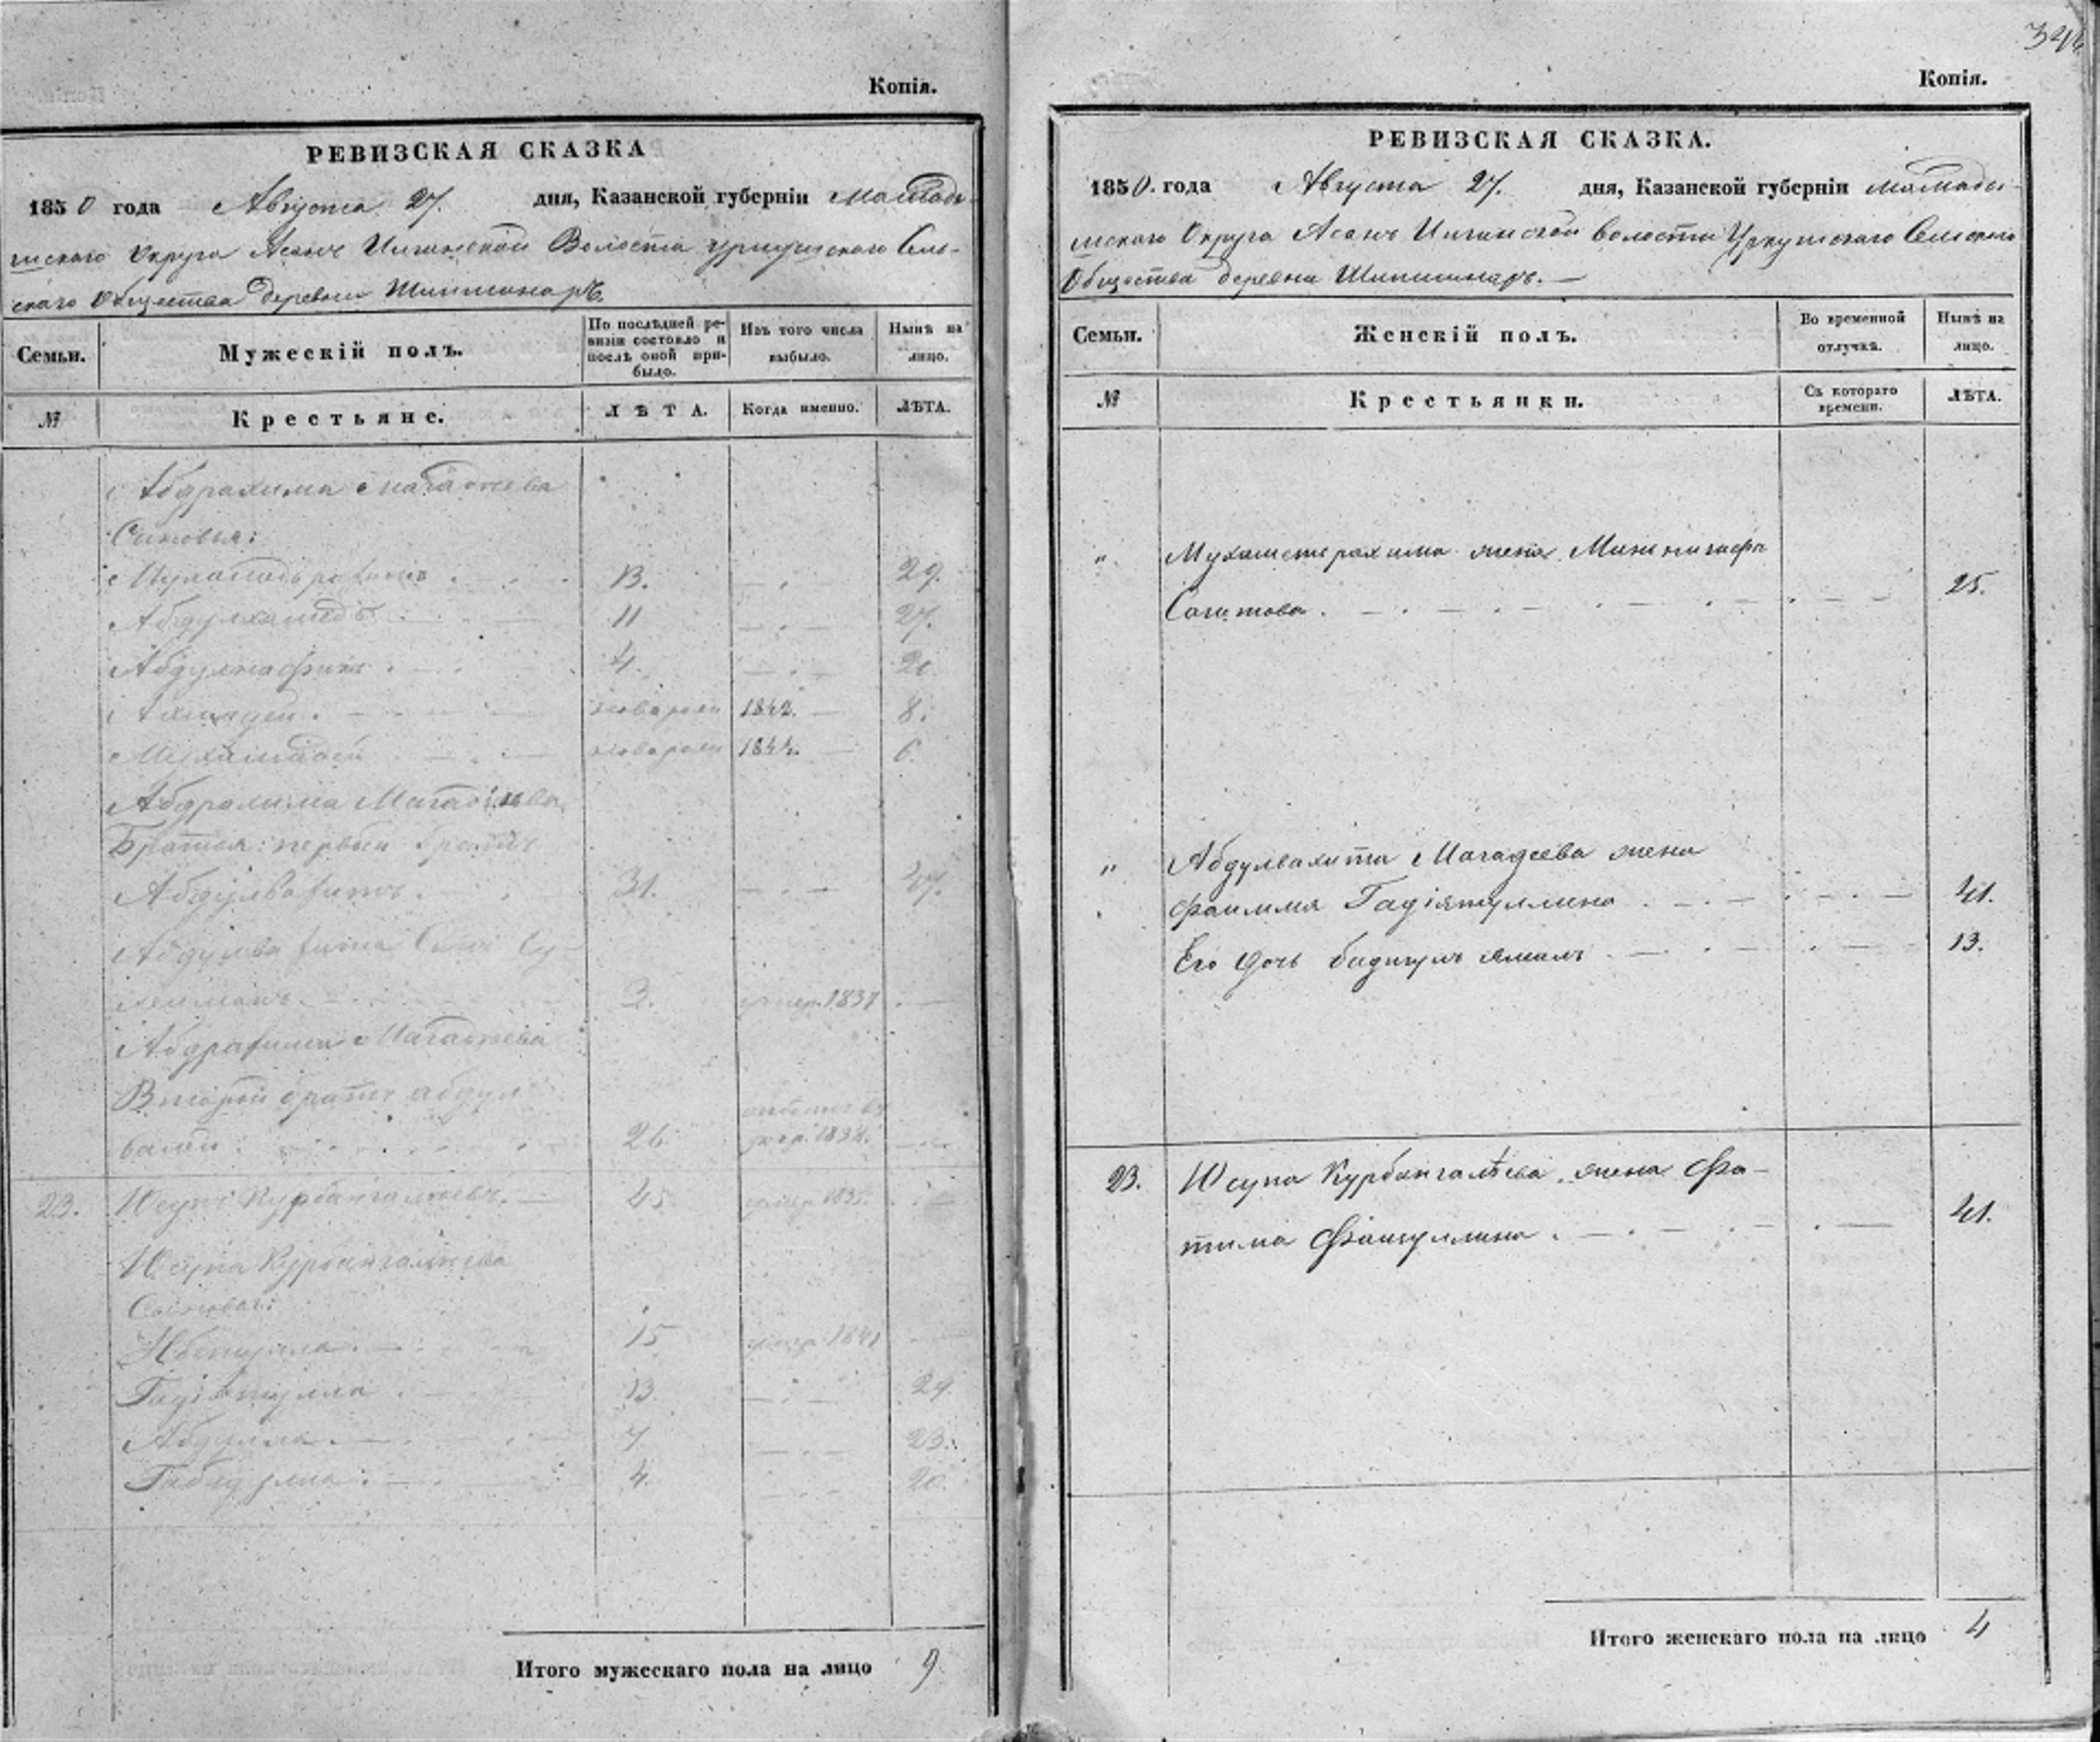 Копія.
РЕВИЗСКАЯ СКАЗКА
1850 года Августа 27. дня, Казанской губерніи Мамады-
шскаго Округа Асанъ Илганской Волости Уркушскаго Сель-
скаго Общества деревни Шапшинаръ
Семьи.
Мужескій полъ.
По послѣдней ре-
визіи состояло и
послѣ оной при-
было.
Изъ того числа
выбыло.
Нынѣ на
лицо.
№
Крестьяне.
ЛѢТА.
Когда именно.
ЛѢТА.
Абдрахима Магадѣева
Сыновья:
Мухамедърахимъ 13. 29.
Абдулхамедъ 11 27.
4. 20
новорож 1842. 8.
новорож 1844. 6.
Абдрахима Магадѣева
Братья: первый братъ
Абдулвахитъ 31. 47.
Абдулвахита Сынъ Су-
лейманъ 2. умер. 1837
Абдрахима Магадѣева
Второй братъ абдул
валей 26
23. Юсупъ Курбангалѣевъ. 45 умер. 1835.
Юсупа Курбангалѣева
Сыновья:
15 умер. 1841
Гадіятулла 13. 29.
Абдулла 7 23.
Габидулла 4. 20.
Итого мужескаго пола на лицо 9.
Копія.
РЕВИЗСКАЯ СКАЗКА.
1850. года Августа 27. дня, Казанской губерніи Мамады-
шскаго Округа Асанъ Илганской волости Уркушскаго Сельскаго
Общества деревни Шапшинаръ.
Семьи.
Женскій полъ.
Во временной
отлучкѣ.
Нынѣ на
лицо.
№
Крестьянки.
Съ котораго
времени.
ЛѢТА.
" Мухаметърахима жена
Сагитова. 25.
" Абдулвахита Магадеева жена
Гадіятуллина 41.
Его дочь 13.
23. Юсупа Курбангалѣева жена Фа-
тима 41.
Итого женскаго пола на лицо 4